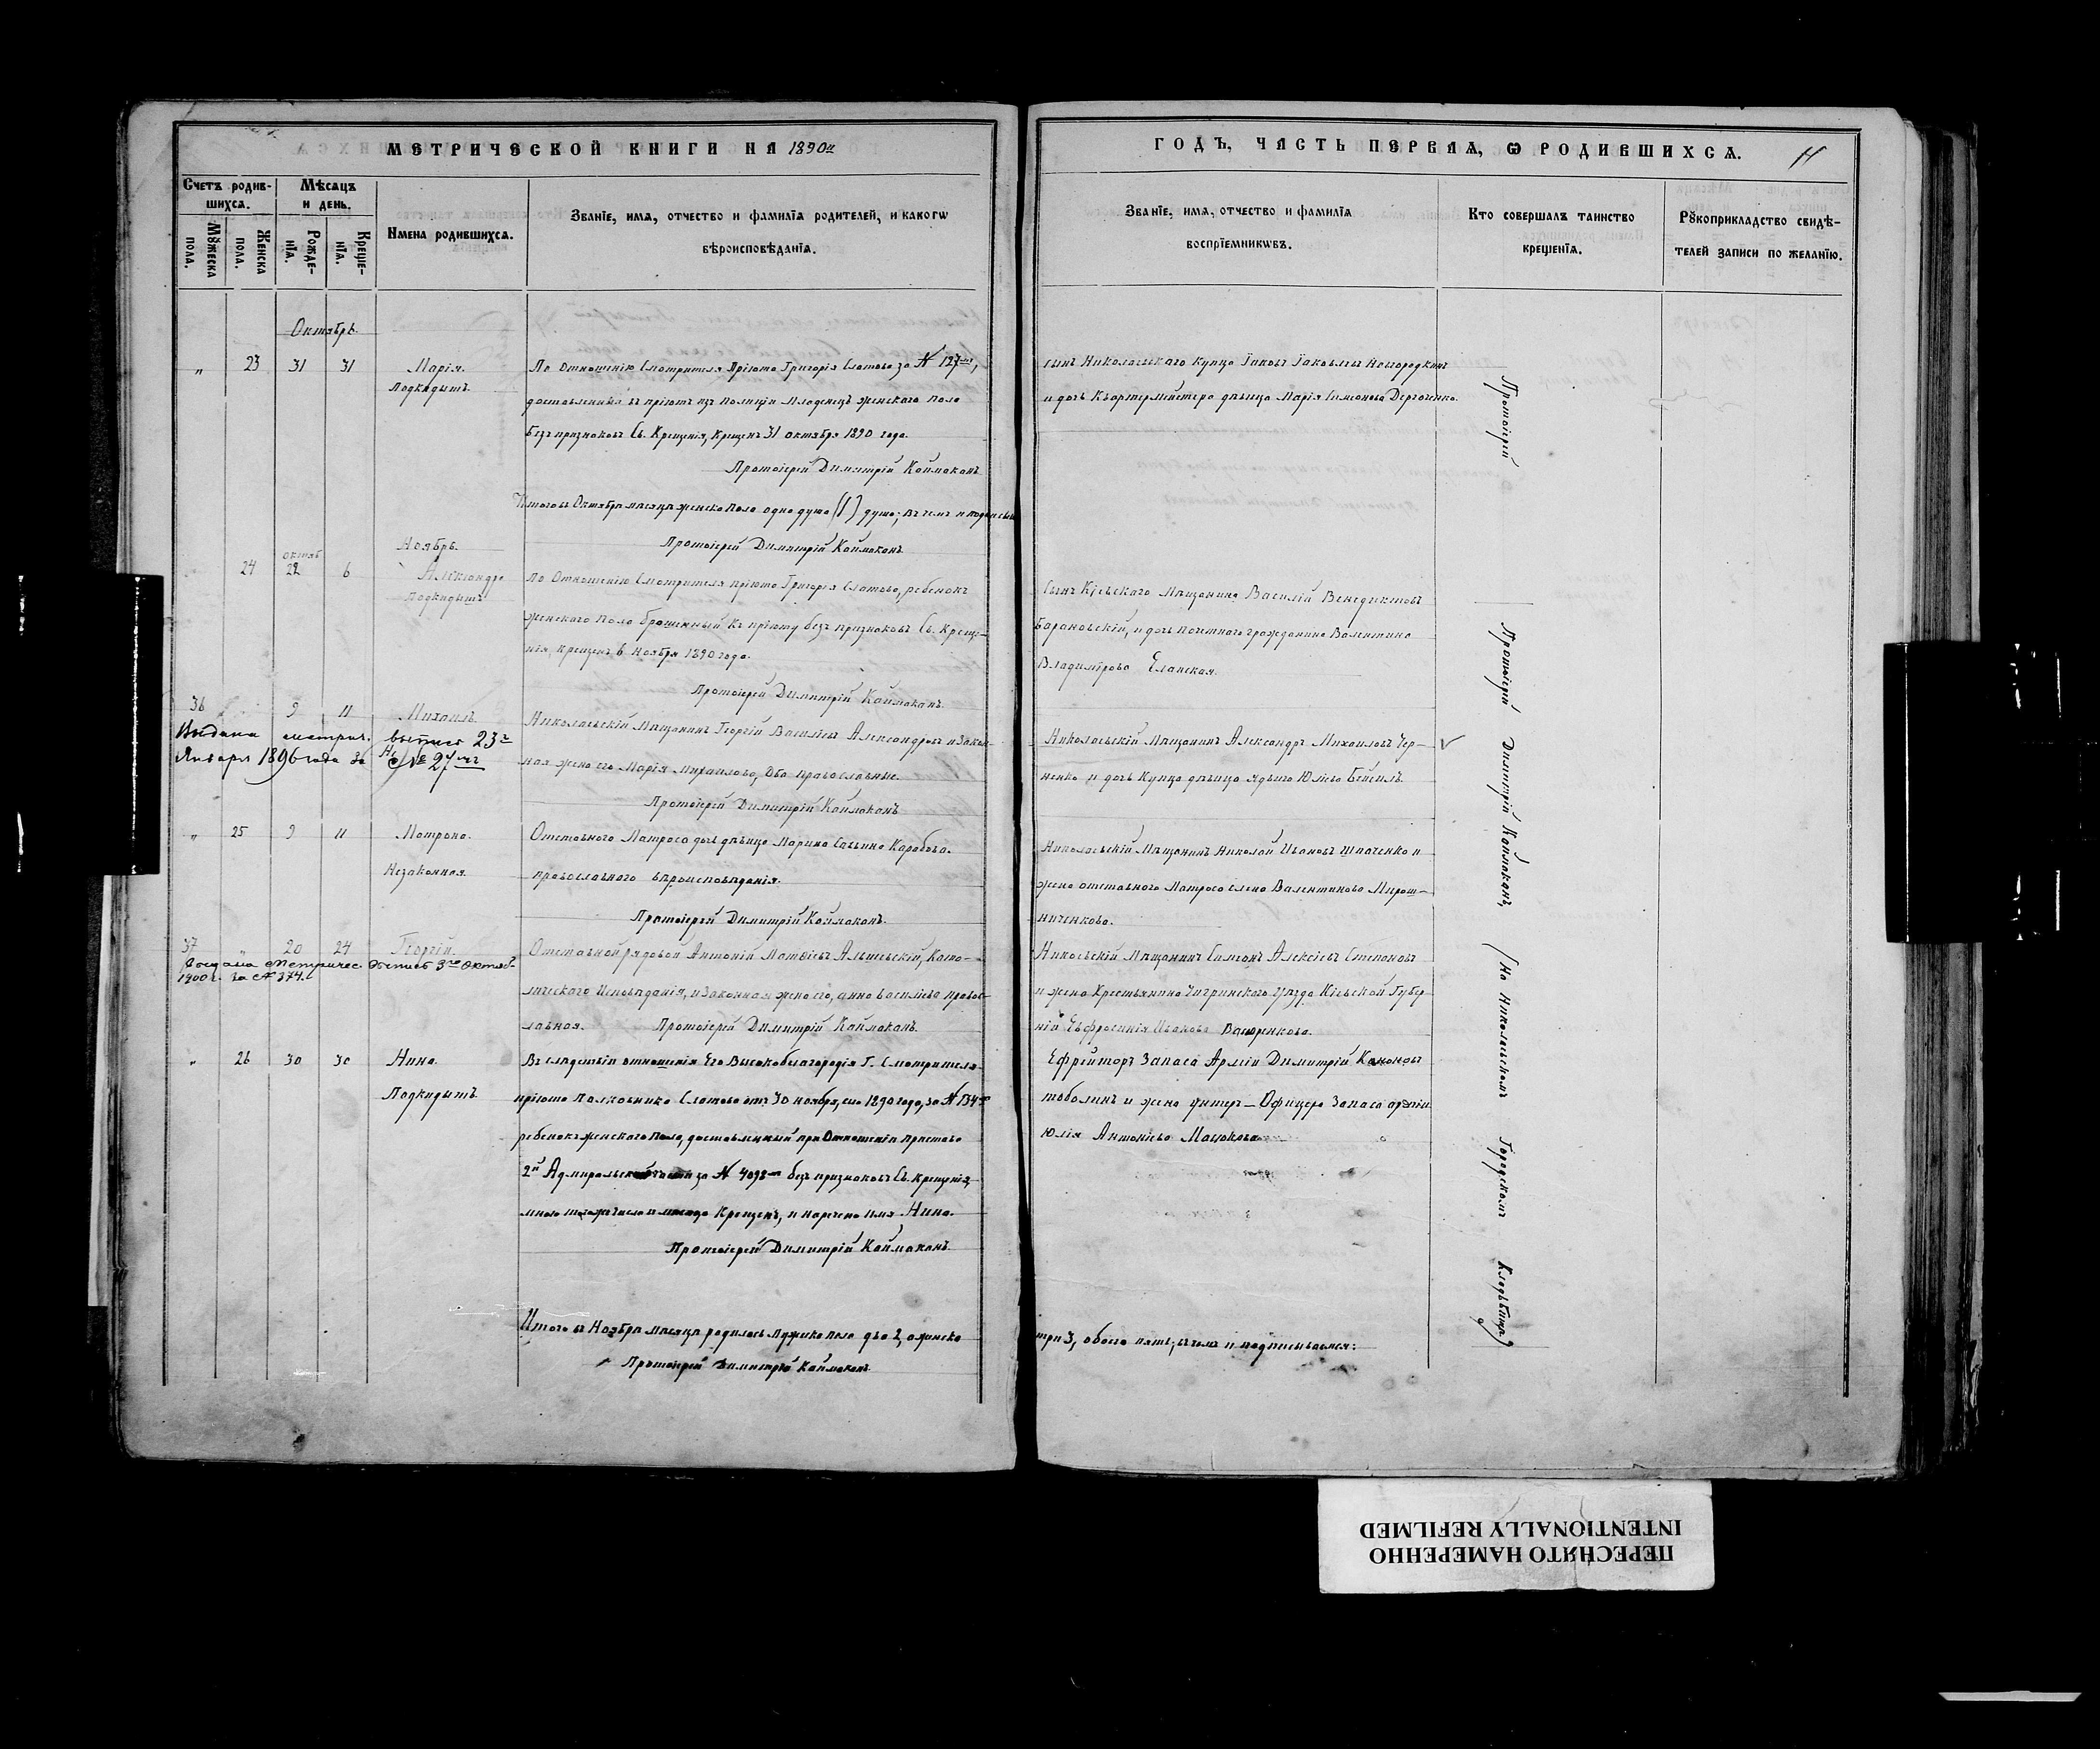 МЕТРИЧЕСКОЙ КНИГИ НА 1890й
ГОДЪ, ЧАСТЬ ПЕРВАЯ, Ѡ РОДИВШИХСЯ.
Счетъ родив-
шихся.
Мѣсяцъ
и день.
Мꙋжеска
пола.
Женска
пола.
Рожде-
нїя.
Креще-
нїя.
Имена родившихся.
Званїе, имя, отчество и фамилїя родителей, и какогѡ
вѣроисповѣданїя.
Званїе, имя, отчество и фамилїя
воспрїемникѡвъ.
Кто совершалъ таинство
крещенїя.
Рꙋкоприкладство свидѣ-
телей записи по желанїю.
Октябрь.
„ 23 31 31 Марія.
Подкидышъ.
По Отношенію Смотрителя Пріюта Григорія за № 127мъ,
доставленный въ пріютъ изъ Полиціи Младенецъ женскаго пола
безъ признаковъ Св. Крещенія, Крещенъ 31 октября 1890 года.
Протоіерей Димитрій Каймаканъ
сынъ Николаевскаго Купца Іаковъ Іаковлевъ
и дочь Квартермейстера дѣвица Марія Симеонова
Итого въ Октябрѣ мѣсяцѣ женска пола одна душа (1) душа; въ чемъ и
Протоіерей Димитрій Каймаканъ
Ноябрь.
24 октяб 22 6 Александра
Подкидышъ
По Отношенію Смотрителя пріюта Григорія ребенокъ
женскаго пола брошенный къ пріюту безъ признаковъ Св. Креще-
нія, крещенъ 6 Ноября 1890 года.
Протоіерей Димитрій Каймаканъ.
Сынъ Кіевскаго Мѣщанина Василій Венедиктовъ
Барановскій, и дочь почетнаго гражданина Валентина
Владимірова Еланская.
36 9 11 Михаилъ
Выдана метрич. выпись 23го
Января 1896 года за № 27мъ
Николаевскій Мѣщанинъ Георгій Васильевъ Александровъ и Закон-
ная жена его Марія Михаилова, Оба православные.
Протоіерей Димитрій Каймаканъ
Николаевскій Мѣщанинъ Александръ Михаиловъ Чер-
ненко и дочь Купца дѣвица Ядвига Юліева
„ 25 9 11 Матрона.
Незаконная.
Отставнаго Матроса дочь дѣвица Марина Саввина
православнаго вѣроисповѣданія.
Протоіерей Димитрій Каймаканъ.
Николаевскій Мѣщанинъ Николай Ивановъ Шпаченко и
жена отставнаго Матроса Елена Валентинова Мирош-
ниченкова.
37 „ 20 24 Георгій.
Выдана Метричес. выпись 3го Октяб.
1900 г. за № 374.
Отставной рядовой Антоній Матвіевъ Като-
лическаго Исповѣданія, и Законная жена его, Анна Васильева правос-
лавная. Протоіерей Димитрій Каймаканъ.
Мѣщанинъ Алексіевъ Степановъ
и жена Крестьянина Чигринскаго Уѣзда Кіевской Губер-
ніи Евфросинія Иванова
„ 26 30 30 Нина.
Подкидышъ
Въ слѣдствіи отношенія Его Высокоблагородія Г. Смотрителя
пріюта Полковника отъ 30 ноября, сего 1890 года, за № 134мъ
ребенокъ женскаго пола, доставленный при Отношеніи пристава
2й Адмиральской части за № 4098мъ безъ признаковъ Св. Крещенія,
мною Крещенъ, и наречено имя Нина.
Протоіерей Димитрій Каймаканъ.
Ефрейторъ Запаса Арміи Димитрій
и жена унтеръ-Офицера Запаса арміи
Юлія Антоніева
Протоіерей
Протоіерей Димитрій Каймаканъ,
(На Николаевскомъ Городскомъ
Итого въ Ноябрѣ мѣсяцѣ родилось мужска пола два 2, женска
три 3, обоего пять; въ чемъ и подписываемся:
Протоіерей Димитрій Каймаканъ
ПЕРЕСНЯТО НАМЕРЕННО
INTENTIONALLY REFILMED